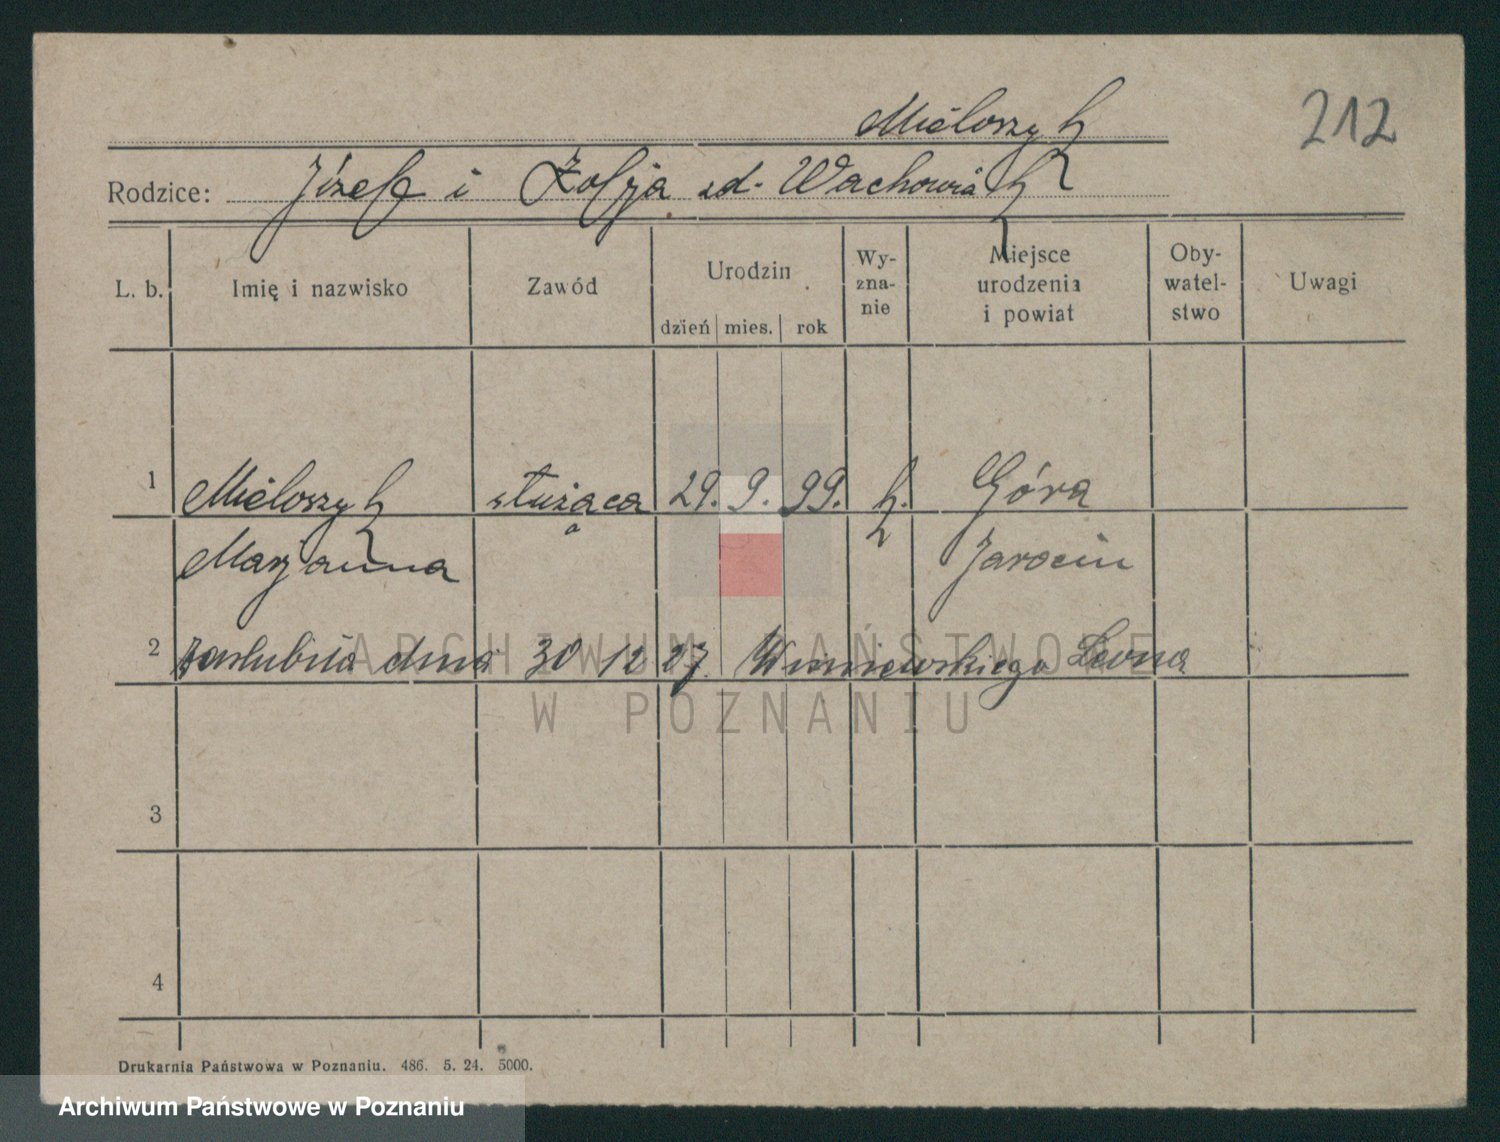 Mieloszyk
212
Rodzice: Józef i Zofja zd. Wachowiak
L. b. Imię i nazwisko Zawód Urodzin dzień mies. rok Wy-zna-nie Miejsce urodzenia i powiat Oby-watel-stwo Uwagi
1 Mieloszyk służąca 29. 9. 99. k. Góra
Marjanna Jarocin
2 zaślubiła dnia 30 12 27. Wiśniewskiego Leona
ARCHIWUM PAŃSTWOWE
W POZNANIU
3
4
Drukarnia Państwowa w Poznaniu. 486. 5. 24. 5000.
Archiwum Państwowe w Poznaniu